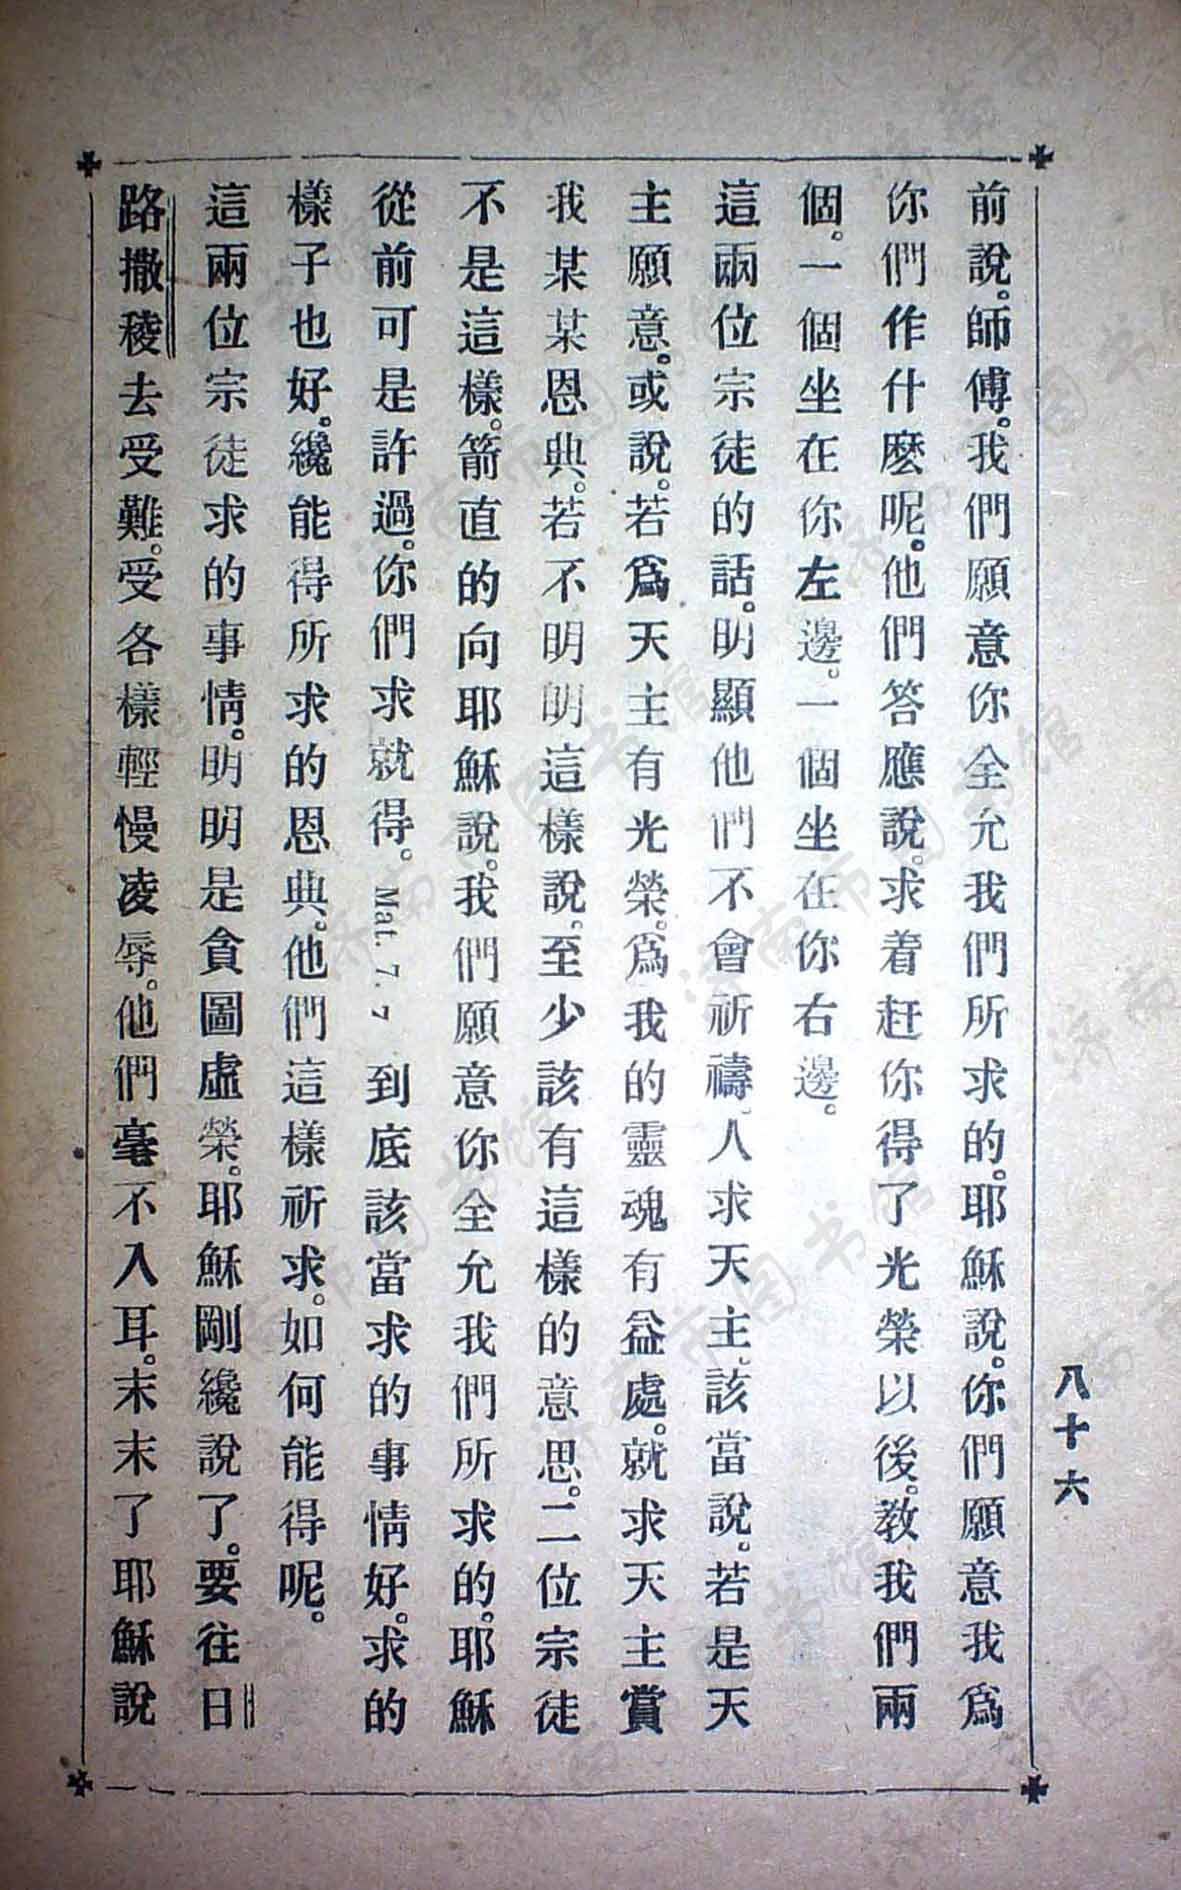 八十六
前說。師傅。我們願意你全允我們所求的。耶穌說。你們願意我爲
你們作什麽呢。他們答應說。求着赶你得了光榮以後。敎我們兩
個。一個坐在你左邊。一個坐在你右邊。
這兩位宗徒的話。明顯他們不會祈禱。人求天主。該當說。若是天
主願意。或說。若爲天主有光榮。爲我的靈魂有益處。就求天主賞
我某某恩典。若不明明這樣說。至少該有這樣的意思。二位宗徒
不是這樣。箭直的向耶穌說。我們願意你全允我們所求的。耶穌
從前可是許過。你們求就得。Mat. 7. 7 到底該當求的事情好。求的
樣子也好。纔能得所求的恩典。他們這樣祈求。如何能得呢。
這兩位宗徒求的事情。明明是貪圖虛榮。耶穌剛纔說了。要往日
路撒稜去受難。受各樣輕慢凌辱。他們毫不入耳。末末了耶穌說